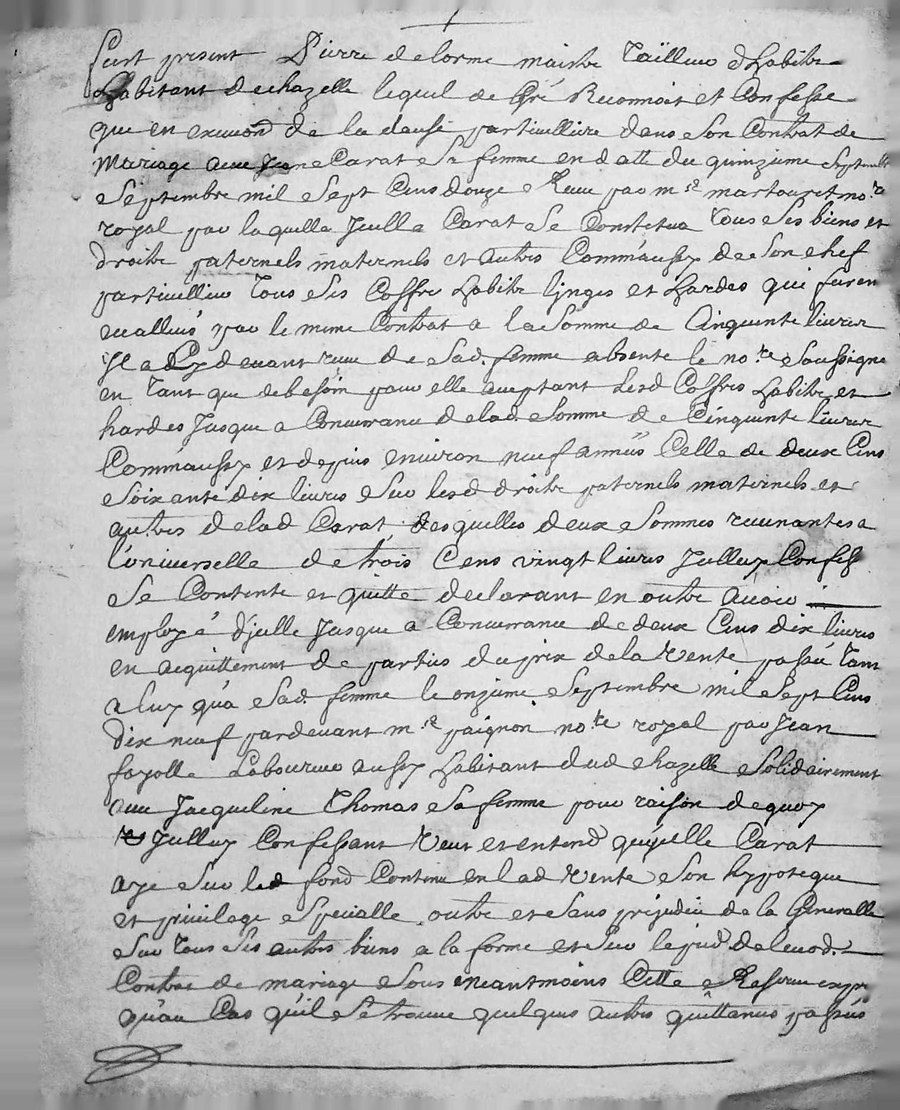 Fust present Pierre delorme maistre Tailleur d'habitz
habitant de chazelle lequel de Gré Reconnois et Confesse
que en execuon de la clause particulliere dans son Contrat de
Mariage avec Jeane Carat sa femme en datte du quinzieme Septembre
Septembre mil sept Cens douze Receu par mre martouret nore
royal par laquelle Jcelle Carat se Constetua Tous ses biens et
droitz paternels maternels et autres Comm'aussy de son chef
particullier Tous ses Coffre habitz linges et hardes qui furen
evallués par le meme Contrat a la somme de Cinquente livres
Jl a Cy devant receu de sad. femme absente le nore soussigne
en Tant que debesoin pour elle aceptant lesd Coffres habitz et
hardes Jusque a Concurrance delad. somme de Cinquente livres
Comm'aussy et depuis environ neuf années Celle de deux Cens
soixante dix livres sur lesd droitz paternels maternels et
autres delad Carat desquelles deux sommes revenantes a
l'universelle de trois Cens vingt livres Jcelluy Confess
se Contente et quitte declarant en outre avoir
employé d'jcelle Jusque a Concurrance de deux Cens dix livres
en acquittement de partie du prix de la Vente passée Tant
a luy qu'a sad. femme le onzieme Septembre mil sept Cens
dix neuf pardevant mre paignon nore royal par Jean
fayolle Laboureur aussy habitant dud chazelle solidairement
avec Jacqueline Thomas sa femme pour raison dequoy
Jcelluy Confessant Veut et entend qu'ycelle Carat
aye sur led fond Contenu en lad Vente son hypoteque
et privilege specialle outre et sans prejudice de la Generalle
sur Tous ses autres biens a la forme et sur le dud
Contrat de mariage sous neantmoins Cette Reserve expr
qu'au Cas qu'il se trouve quelques autres quittances passées